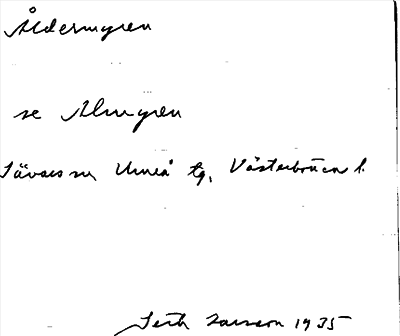 Åldermyren
se Almyren
Sävars sn, Umeå tg, Västerbotten l.
Seth Larsson 1935